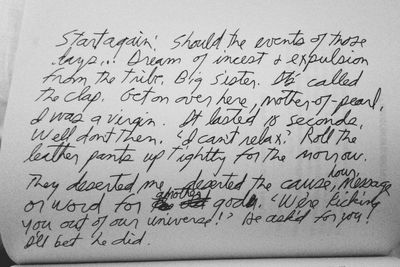 Start again. Should the events of those
days... Dream of incest & expulsion
from the tribe, Big Sister. It's called
the clap. Get on over here, mother-of-pearl,
I was a virgin. It lasted 18 seconds,
Well don't then. 'I can't relax.' Roll the
leather pants up tightly for the morrow.
They deserted me, deserted the cause, love, message
or word for another god. 'We're kicking
you out of our universe!' He ask'd for you!
I'll bet he did.